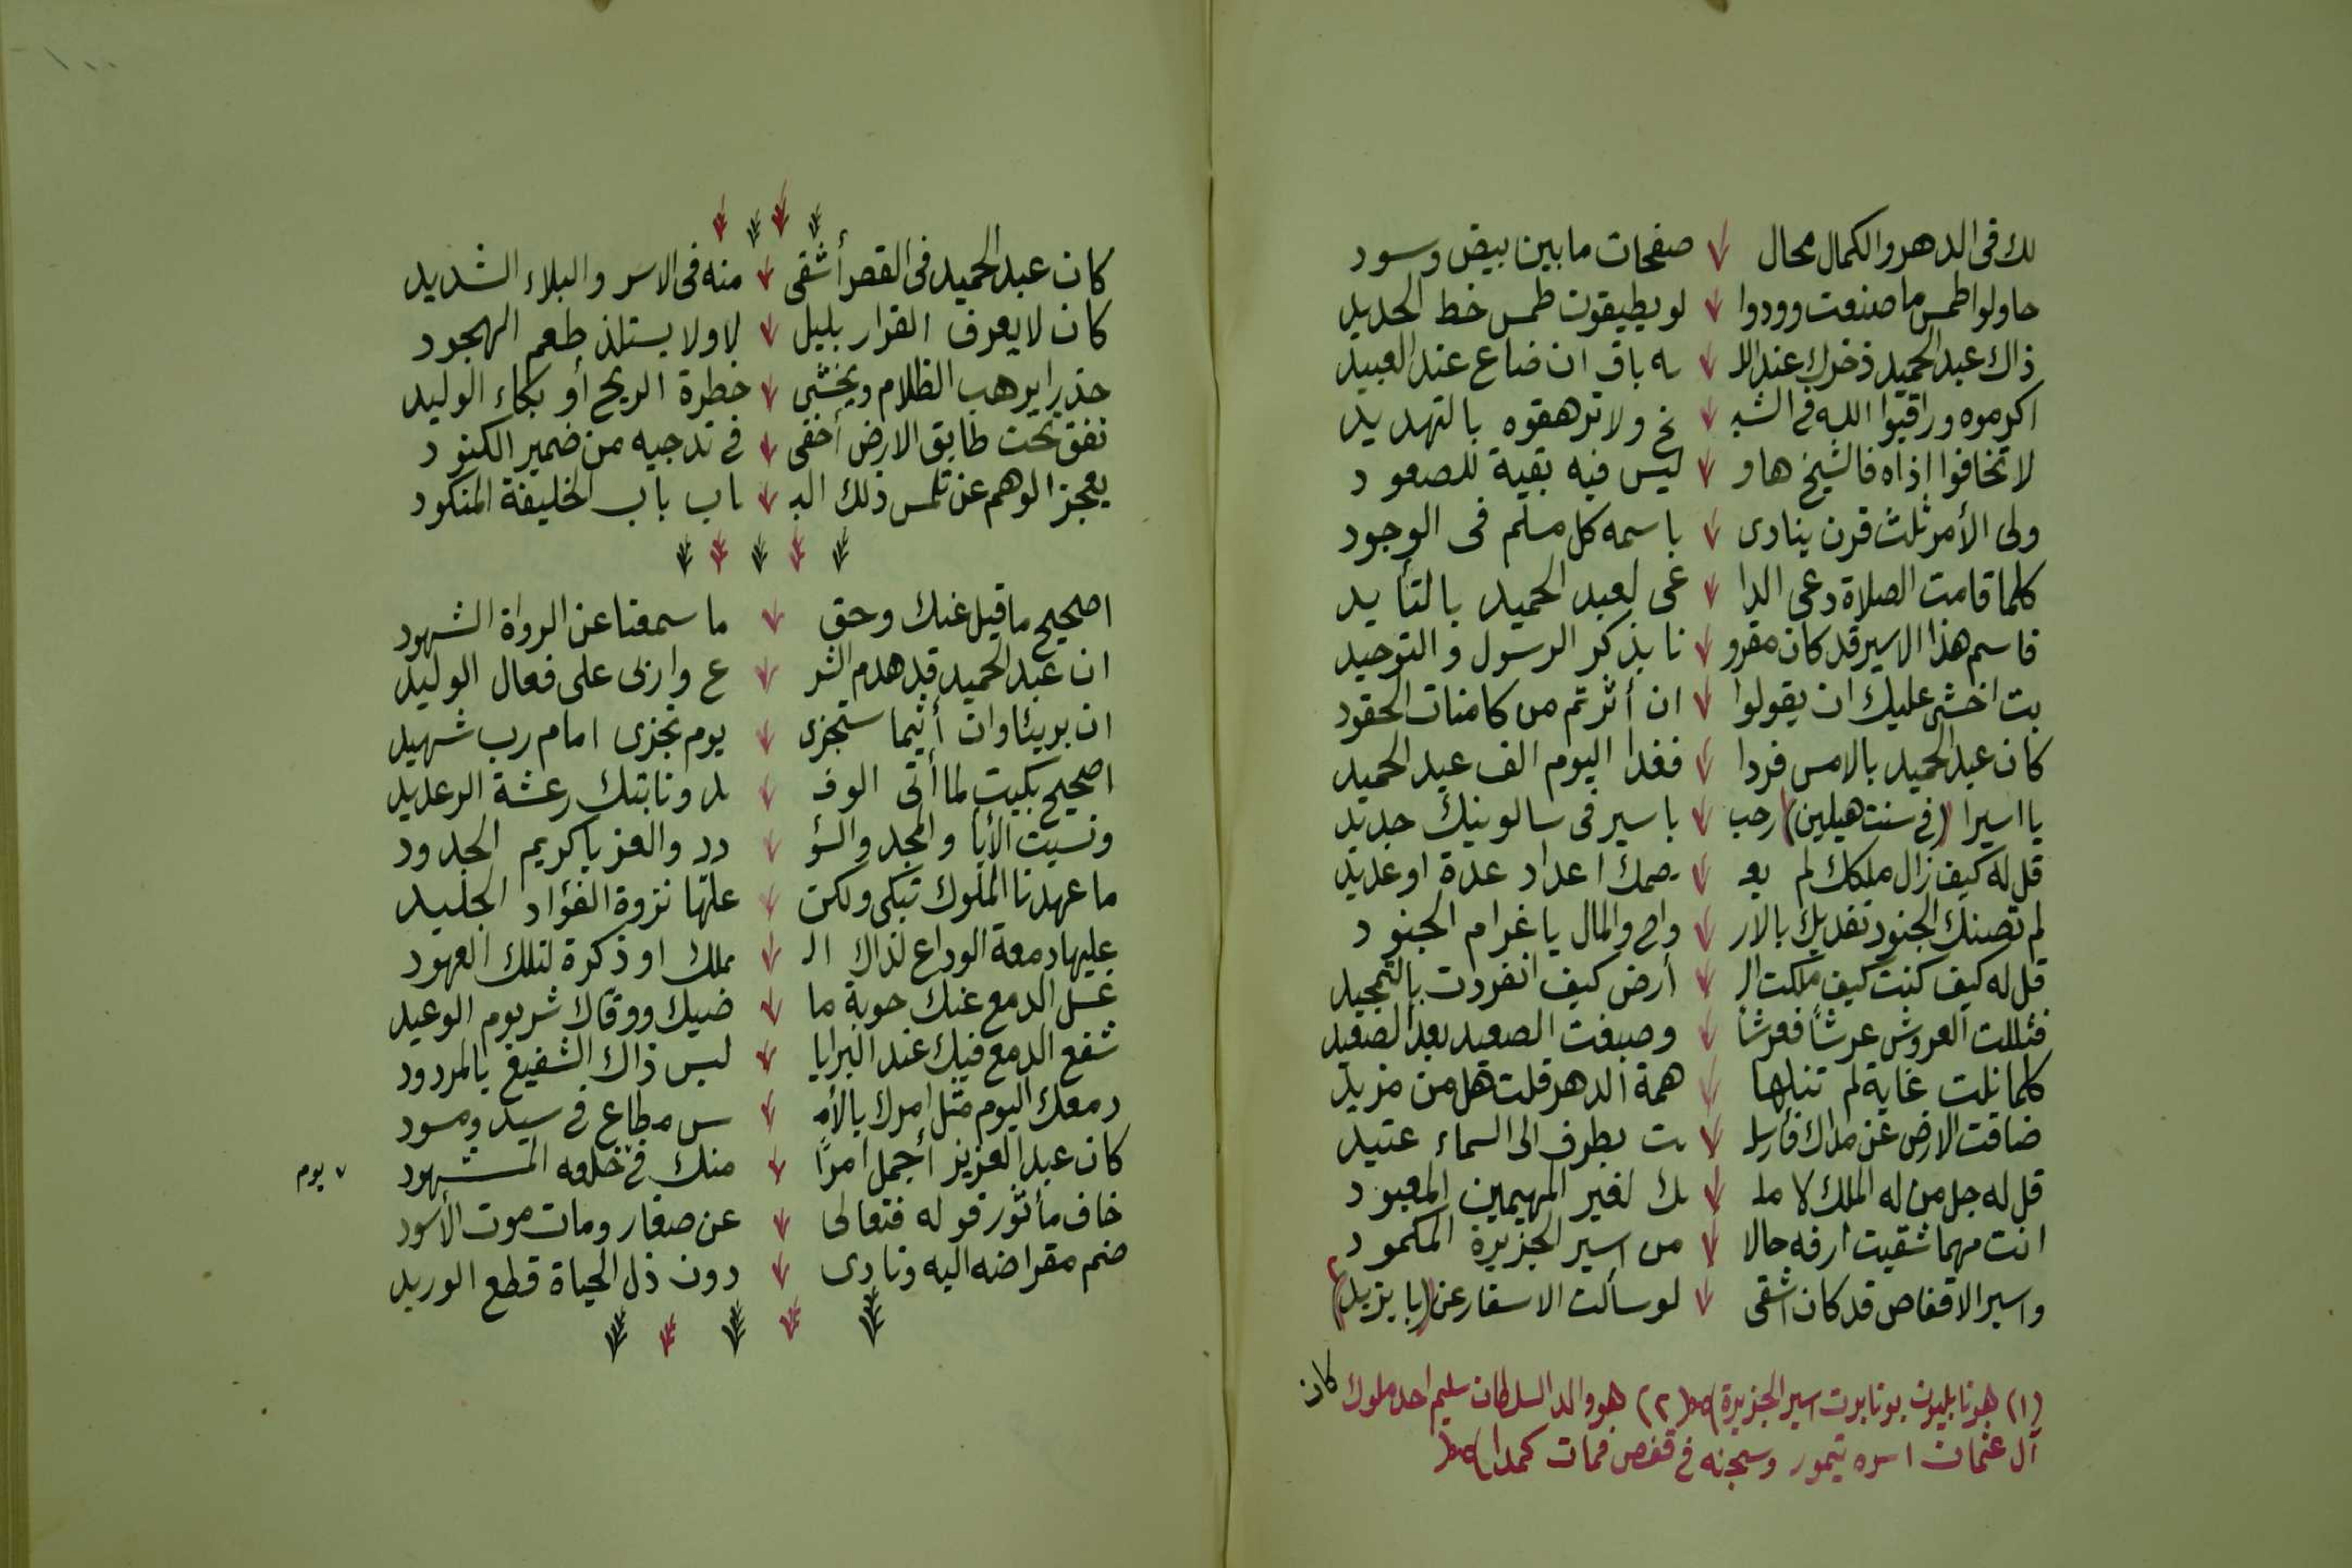 لك فى الدهر والكمال محال صفحات ما بين بيض وسود
حاولوا طمس ما صنعت وودوا لو يطيقون طمس خط الحديد
ذاك عبد الحميد ذخرك عند الله باق ان ضاع عند العبيد
اكرموه وراقبوا الله فى الشيخ ولا ترهقوه بالتهديد
لا تخافوا إذاه فالشيخ هاو ليس فيه بقية للصعود
ولى الأمر ثلث قرن ينادى باسمه كل مسلم فى الوجود
كلما قامت الصلاة دعى الداعى لعبد الحميد بالتأييد
فاسم هذا الاسير قد كان مقرونا بذكر الرسول والتوحيد
بت اخشى عليك ان يقولوا ان أثرتم من كامنات الحقود
كان عبد الحميد بالامس فردا فغدا اليوم الف عبد الحميد
يا اسيرا (فى سنت هيلين) رحب باسير فى سالونيك جديد
قل له كيف زال ملكك لم يعصمك اعداد عدة او عديد
لم تصنك الجنود تفديك بالارواح والمال يا غرام الجنود
قل له كيف كنت كيف ملكت الأرض كيف انفردت بالتمجيد
فثللت العروش عرشاً فعرشاً وصبغت الصعيد بعد الصعيد
كلما نلت غاية لم تنلها همة الدهر قلت هل من مزيد
ضاقت الارض عن مداك فأرسلت بطرف الى السماء عتيد
قل له جل من له الملك لا ملك لغير المهيمن المعبود
انت مهما شقيت ارفه حالا من اسير الجزيرة المكمود
واسير الاقفاص قد كان اشقى لو سألت الاسفار عن (بايزيد) ٢
(١) هو نابليون بونابرت اسير الجزيرة (٢) هو والد السلطان سليم احد ملوك
آل عثمان اسره تيمور وسجنه فى قفص فمات كمدا
كان
كان عبد الحميد فى القصر أشقى منه فى الاسر والبلاء الشديد
كان لا يعرف القرار بليل لا ولا يستلذ طعم الهجود
حذرا يرهب الظلام ويخشى خطرة الريح أو بكاء الوليد
نفق تحت طابق الارض أخفى فى تدجيه من ضمير الكنود
يعجز الوهم عن تلمس ذلك الباب باب الخليفة المنكود
اصحيح ما قيل عنك وحق ما سمعنا عن الرواة الشهود
ان عبد الحميد قد هدم الشرع واربى على فعال الوليد
ان بريئا وان أثيما ستجزى يوم تجزى امام رب شهيد
اصحيح بكيت لما أتى الوفد ونابتك رعشة الرعديد
ونسيت الأبا والمجد والسؤدد والعز يا كريم الجدود
ما عهدنا الملوك تبكى ولكن علتها نزوة الفؤاد الجليد
عليها دمعة الوداع لذاك الملك او ذكرة لتلك العهود
غسل الدمع عنك حوبة ماضيك ووقاك شر يوم الوعيد
شفع الدمع فيك عند البرايا ليس ذاك الشفيع بالمردود
دمعك اليوم مثل امرك بالأمس مطاع فى سيد ومسود
كان عبد العزيز أجمل امرًا منك فى خلعه المشهود
خاف مأثور قوله فتعالى عن صغار ومات موت الأسود
ضم مقراضه اليه ونادى دون ذل الحياة قطع الوريد
٧ يوم